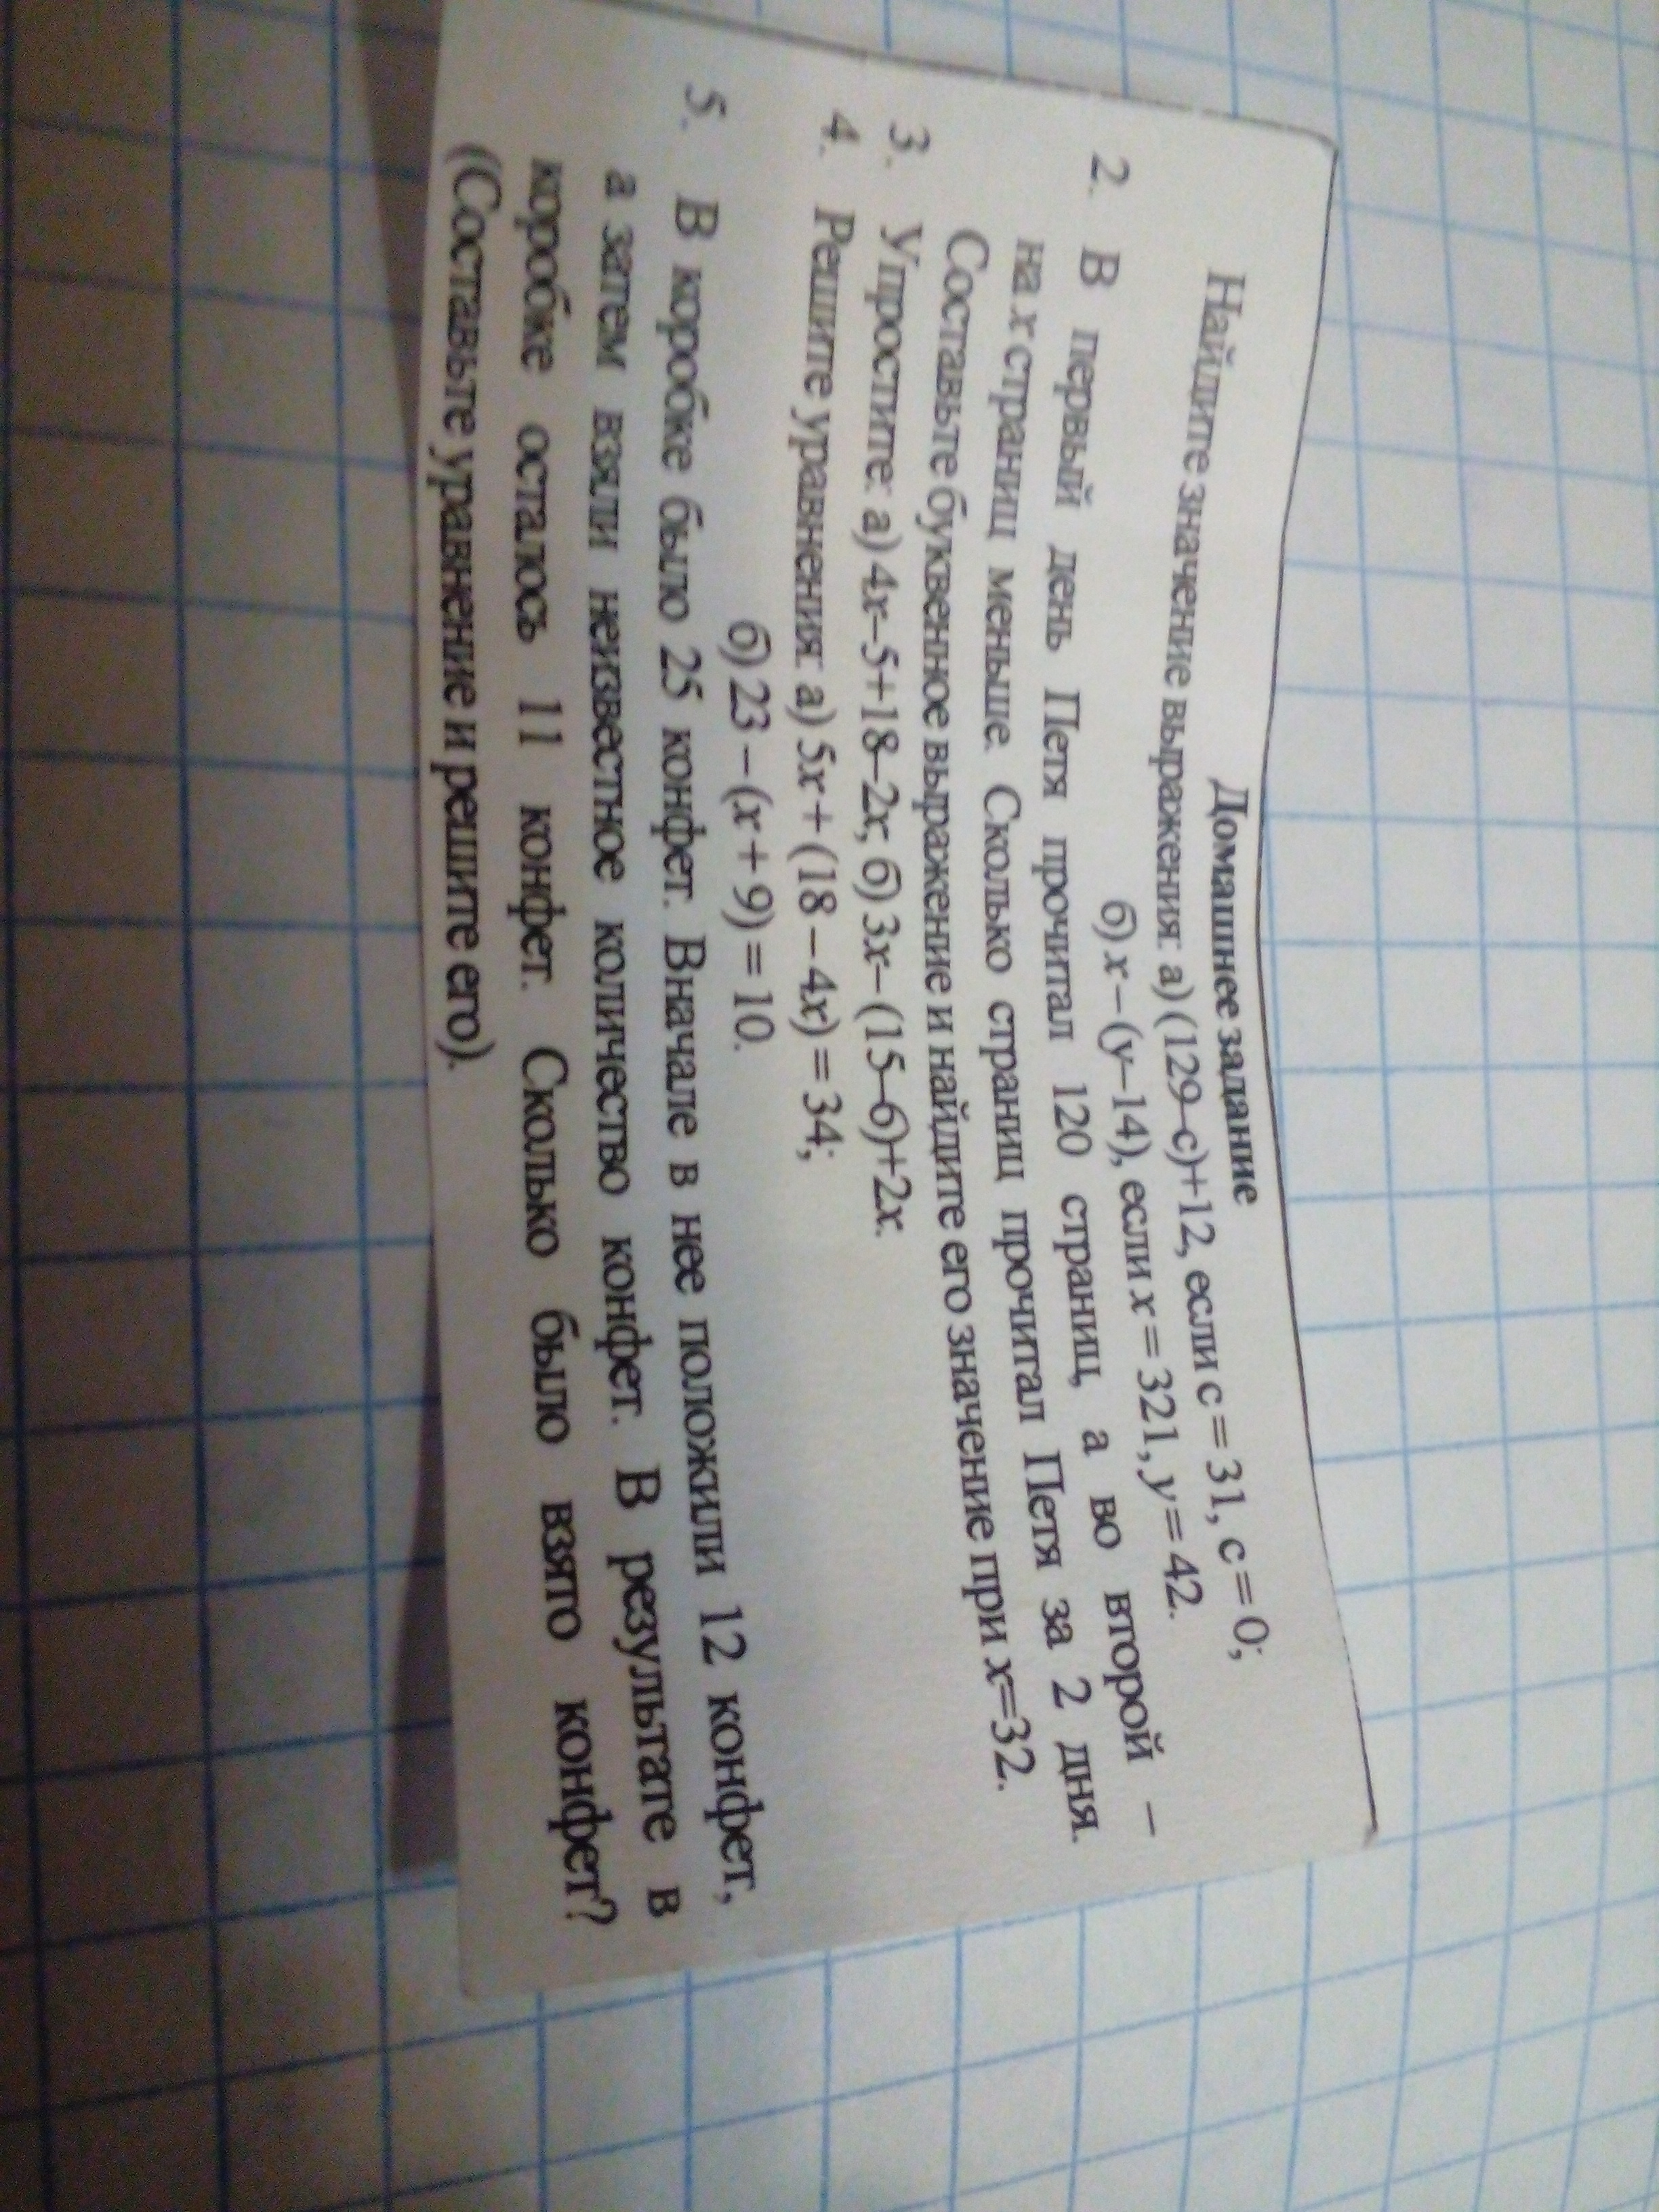 Домашнее задание
Найдите значение выражения: а) (129–с)+12, если с = 31, с = 0;
б) x – (y–14), если x = 321, y = 42.
2. В первый день Петя прочитал 120 страниц, а во второй –
на x страниц меньше. Сколько страниц прочитал Петя за 2 дня.
Составьте буквенное выражение и найдите его значение при x=32.
3. Упростите: а) 4x–5+18–2x; б) 3x–(15–6)+2x.
4. Решите уравнения: а) 5x + (18 – 4x) = 34;
б) 23 – (x + 9) = 10.
5. В коробке было 25 конфет. Вначале в нее положили 12 конфет,
а затем взяли неизвестное количество конфет. В результате в
коробке осталось 11 конфет. Сколько было взято конфет?
((Составьте уравнение и решите его).